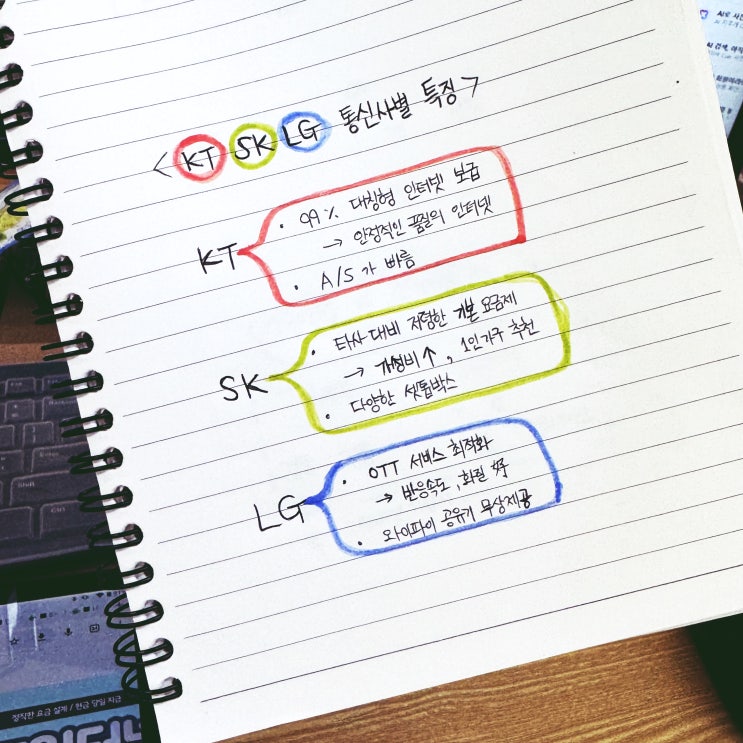 < KT SK LG 통신사별 특징 >
KT
• 99% 대칭형 인터넷 보급
→ 안정적인 품질의 인터넷
• A/S가 빠름
SK
• 타사 대비 저렴한 기본 요금제
→ 가성비↑, 1인가구 추천
• 다양한 셋톱박스
LG
• OTT 서비스 최적화
→ 반응속도, 화질 好
• 와이파이 공유기 무상제공
정직한 요금 설계 / 현금 당일 지급